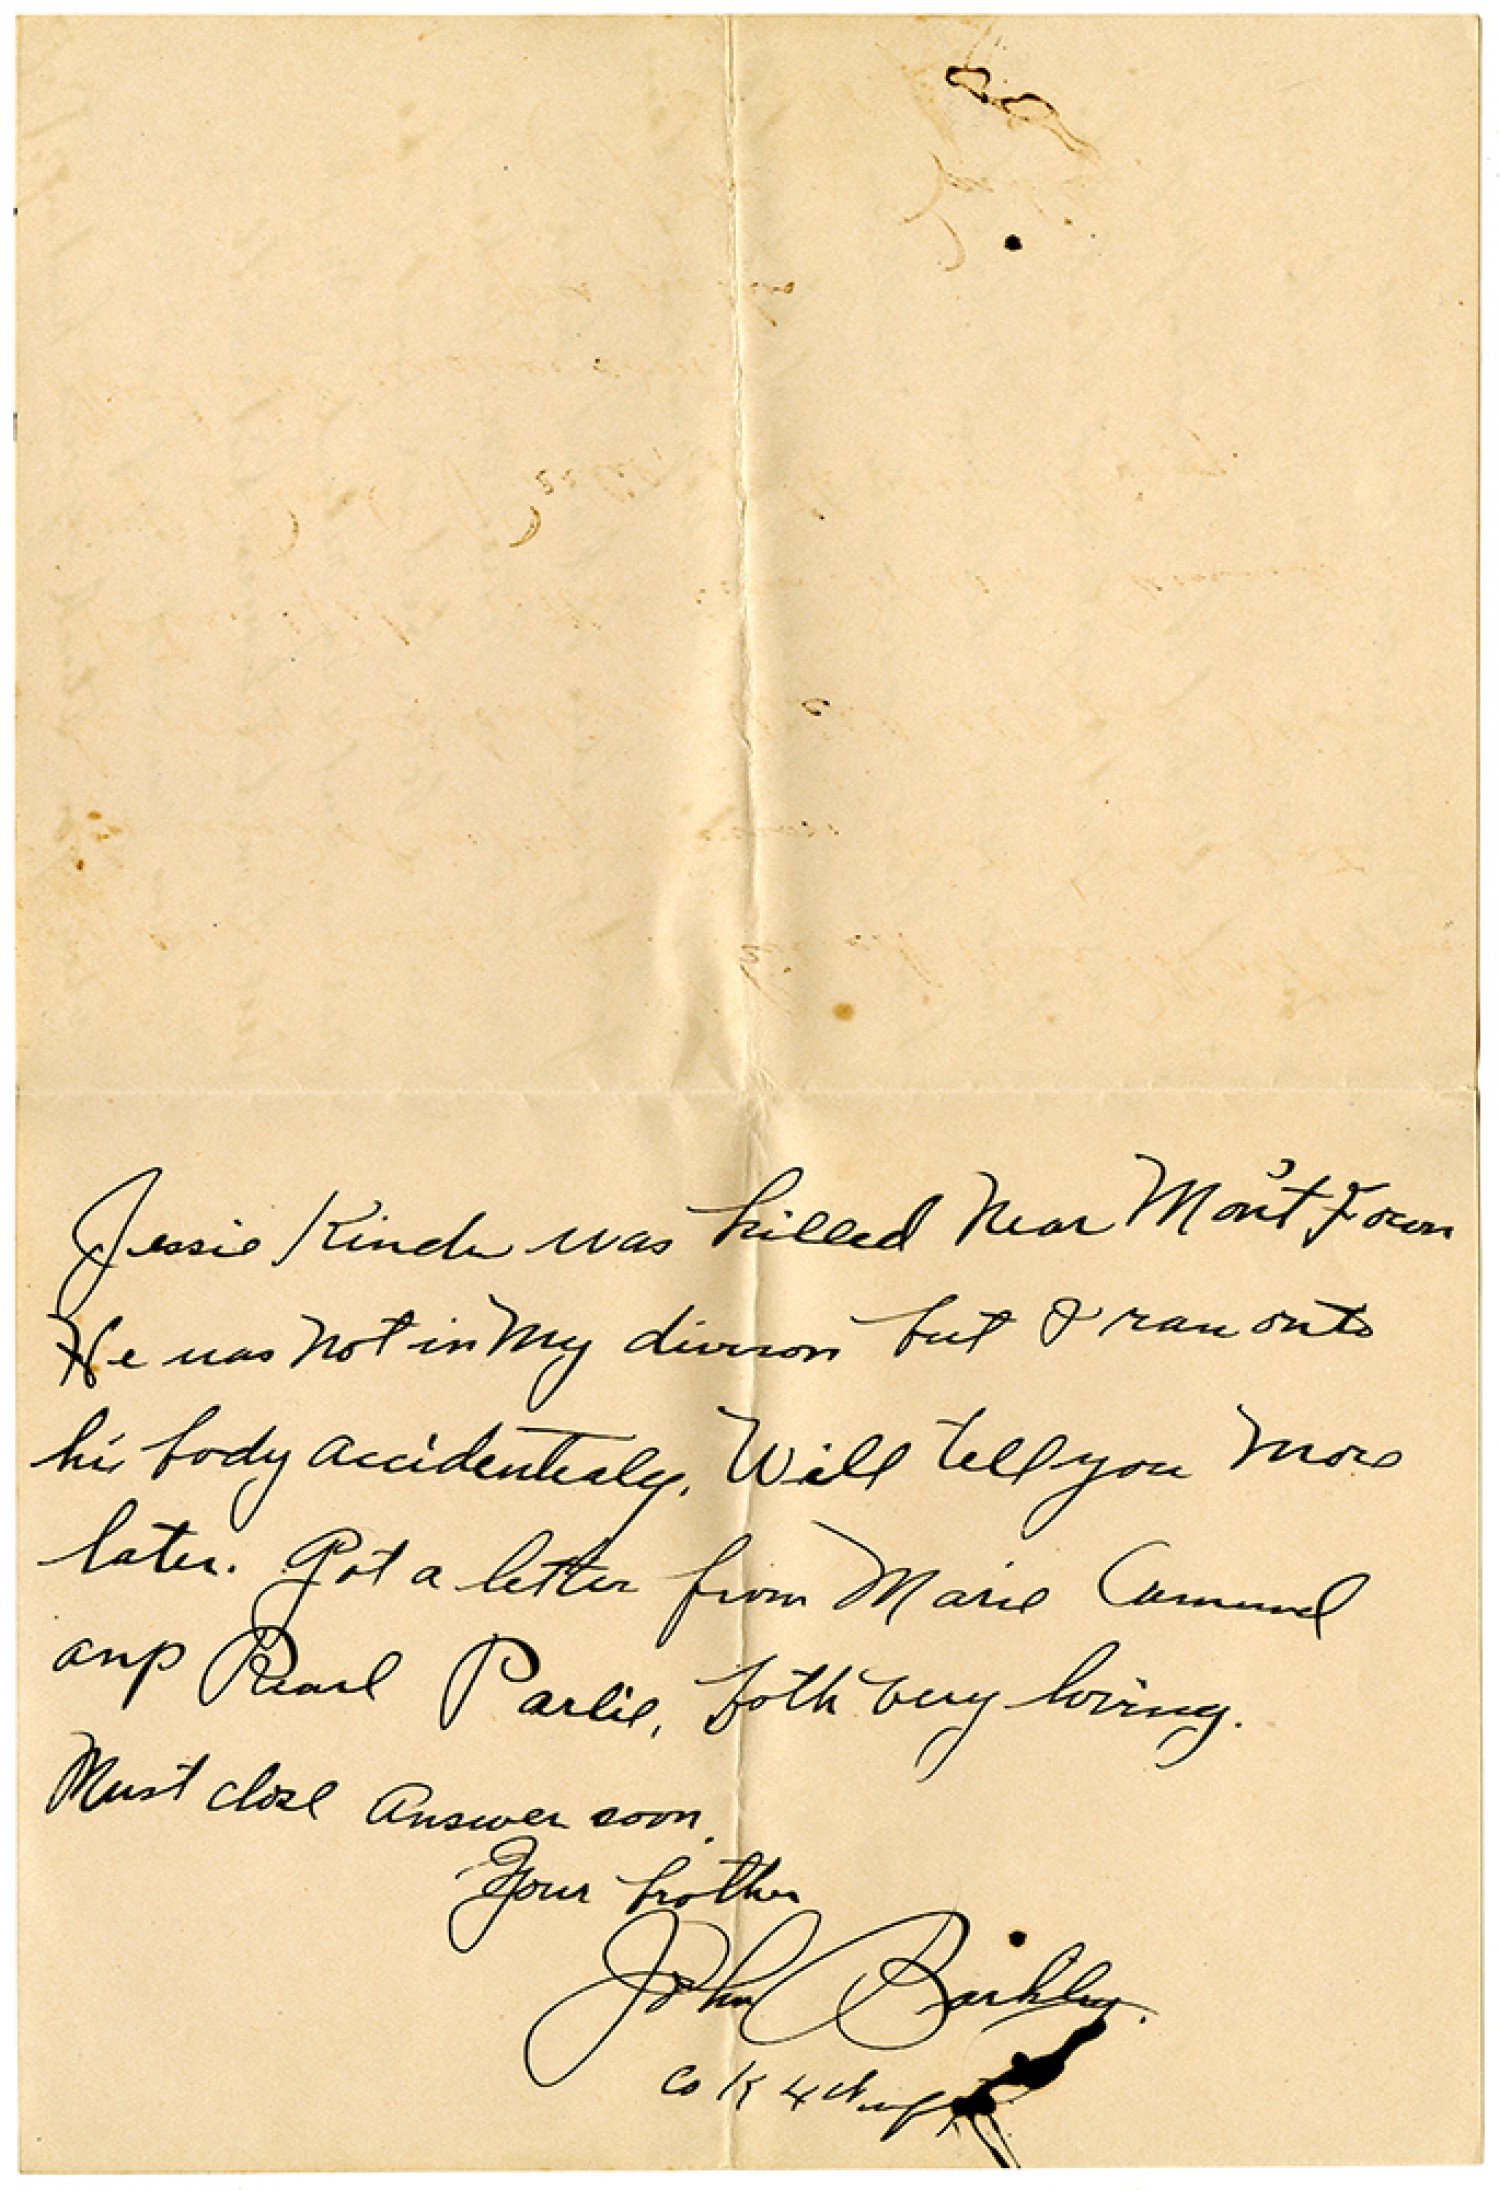 Jessie Kinder was killed near Mont Focon
He was not in my divison but I ran onto
his body accidentaly. Will tell you more
later. Got a letter from Marie
and Pearl Parlie, both very loving.
Must close Answer soon.
Your brother
John Barkley.
Co K 4th Inf